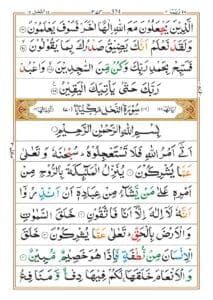 الَّذِيْنَ يَجْعَلُوْنَ مَعَ اللّٰهِ اِلٰهًا اٰخَرَ فَسَوْفَ يَعْلَمُوْنَ
وَلَقَدْ نَعْلَمُ اَنَّكَ يَضِيْقُ صَدْرُكَ بِمَا يَقُوْلُوْنَ
فَسَبِّحْ بِحَمْدِ رَبِّكَ وَكُنْ مِّنَ السّٰجِدِيْنَ وَاعْبُدْ
رَبَّكَ حَتّٰى يَاْتِيَكَ الْيَقِيْنُ
سُوْرَةُ النَّحْلِ مَكِّيَّةٌ
بِسْمِ اللّٰهِ الرَّحْمٰنِ الرَّحِيْمِ
اَتٰٓى اَمْرُ اللّٰهِ فَلَا تَسْتَعْجِلُوْهُ سُبْحٰنَهٗ وَتَعٰلٰى
عَمَّا يُشْرِكُوْنَ يُنَزِّلُ الْمَلٰٓئِكَةَ بِالرُّوْحِ مِنْ
اَمْرِهٖ عَلٰى مَنْ يَّشَآءُ مِنْ عِبَادِهٖٓ اَنْ اَنْذِرُوْٓا
اَنَّهٗ لَآ اِلٰهَ اِلَّآ اَنَا فَاتَّقُوْنِ خَلَقَ السَّمٰوٰتِ
وَالْاَرْضَ بِالْحَقِّ تَعٰلٰى عَمَّا يُشْرِكُوْنَ خَلَقَ
الْاِنْسَانَ مِنْ نُّطْفَةٍ فَاِذَا هُوَ خَصِيْمٌ مُّبِيْنٌ
وَالْاَنْعَامَ خَلَقَهَا لَكُمْ فِيْهَا دِفْءٌ وَّمَنَافِعُ